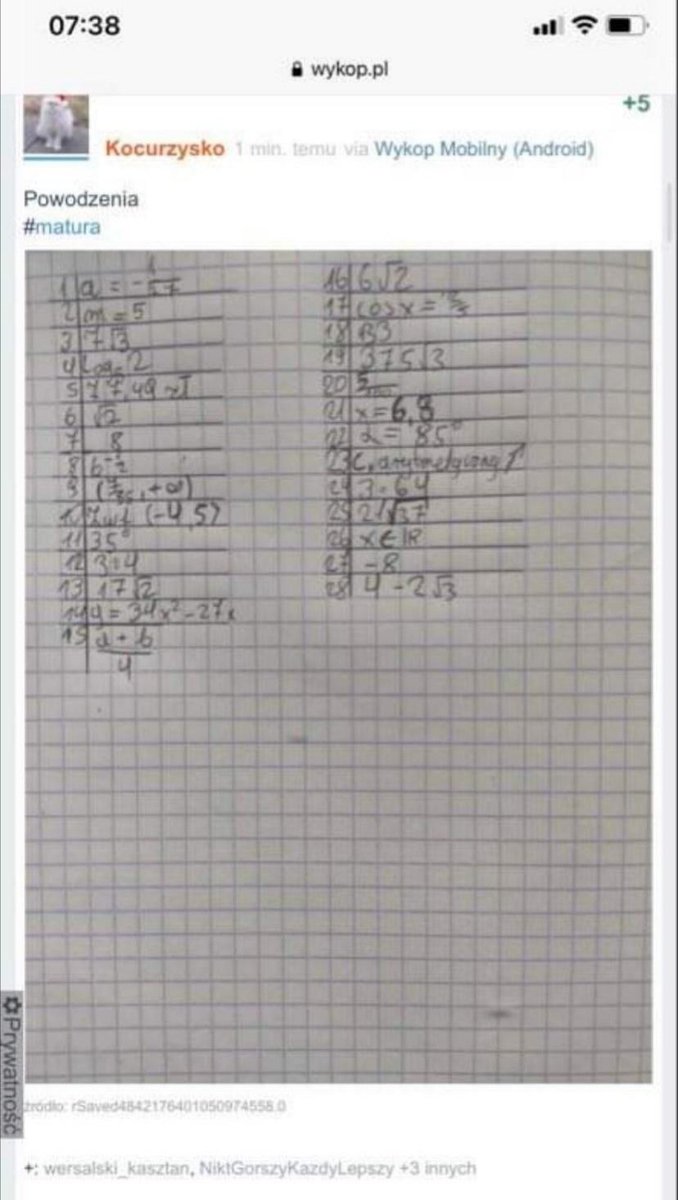 07:38
wykop.pl
+5
Kocurzysko 1 min. temu via Wykop Mobilny (Android)
Powodzenia
#matura
1 a = -1/57
2 m = 5
3 7√3
4 2
5 77,49 zł
6 √2
7 8
8
9 , +∞)
10 (-4,5)
11 35°
12 3÷4
13 17√2
14 y = 34x² - 27x
15 a + b
4
16 6√2
17 cos x =
18 B3
19 375√3
20
21 x = 6,8
22 α = 85°
23 C, arytmetyczny ↑
24 3·64
25 21√37
26 x ∈ R
27 -8
28 4 - 2√3
Prywatność
źródło: rSaved4842176401050974558.0
+: wersalski_kasztan, NiktGorszyKazdyLepszy +3 innych